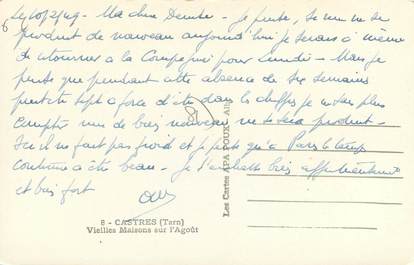 Le 20/2/49 - Ma chère Denise - Je pense, si rien ne se
produit de nouveau aujourd'hui je serais à même
de retourner à la Compagnie pour lundi - Mais je
pense que pendant cette absence de six semaines
peut être sept à force d'être dans les chiffres je ne sais plus
compter rien de bien nouveau ne se sera produit -
Ici il ne fait pas froid et je pense qu'à Paris le temps
continue à être beau - Je t'embrasse bien affectueusement
et bien fort
8 - CASTRES (Tarn)
Vieilles Maisons sur l'Agoût
Les Cartes APA POUX -